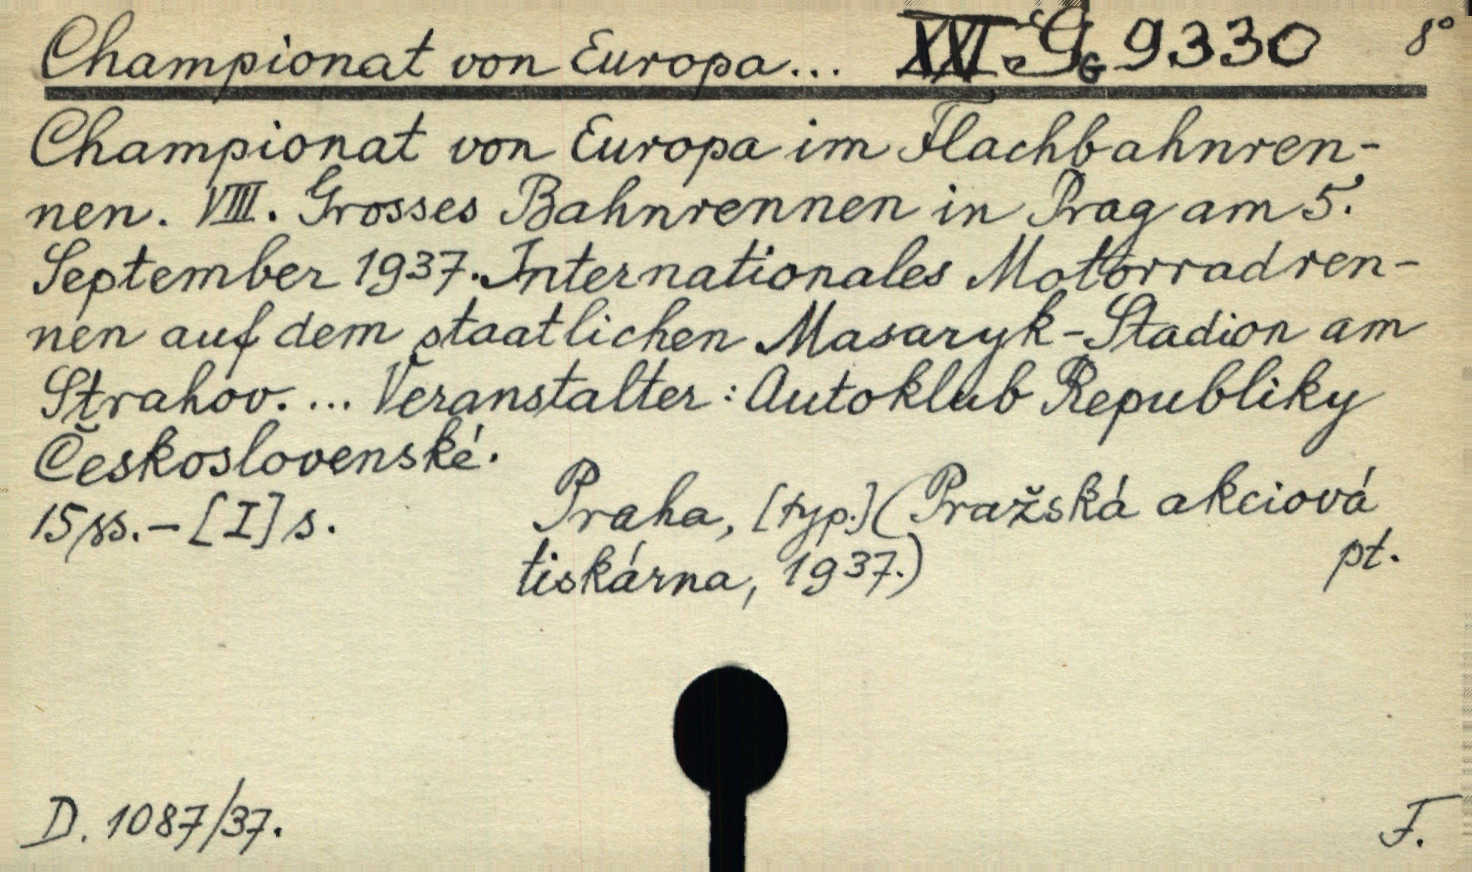 Championat von Europa... XVI G 9330 8°
Championat von Europa im Flachbahnren-
nen. VIII. Grosses Bahnrennen in Prag am 5.
September 1937. Internationales Motorradren-
nen auf dem staatlichen Masaryk-Stadion am
Strahov. ... Veranstalter: Autoklub Republiky
Československé.
15 ss. - [I] s. Praha, [typ.] (Pražská akciová
tiskárna, 1937.) pt.
D. 1087/37. F.